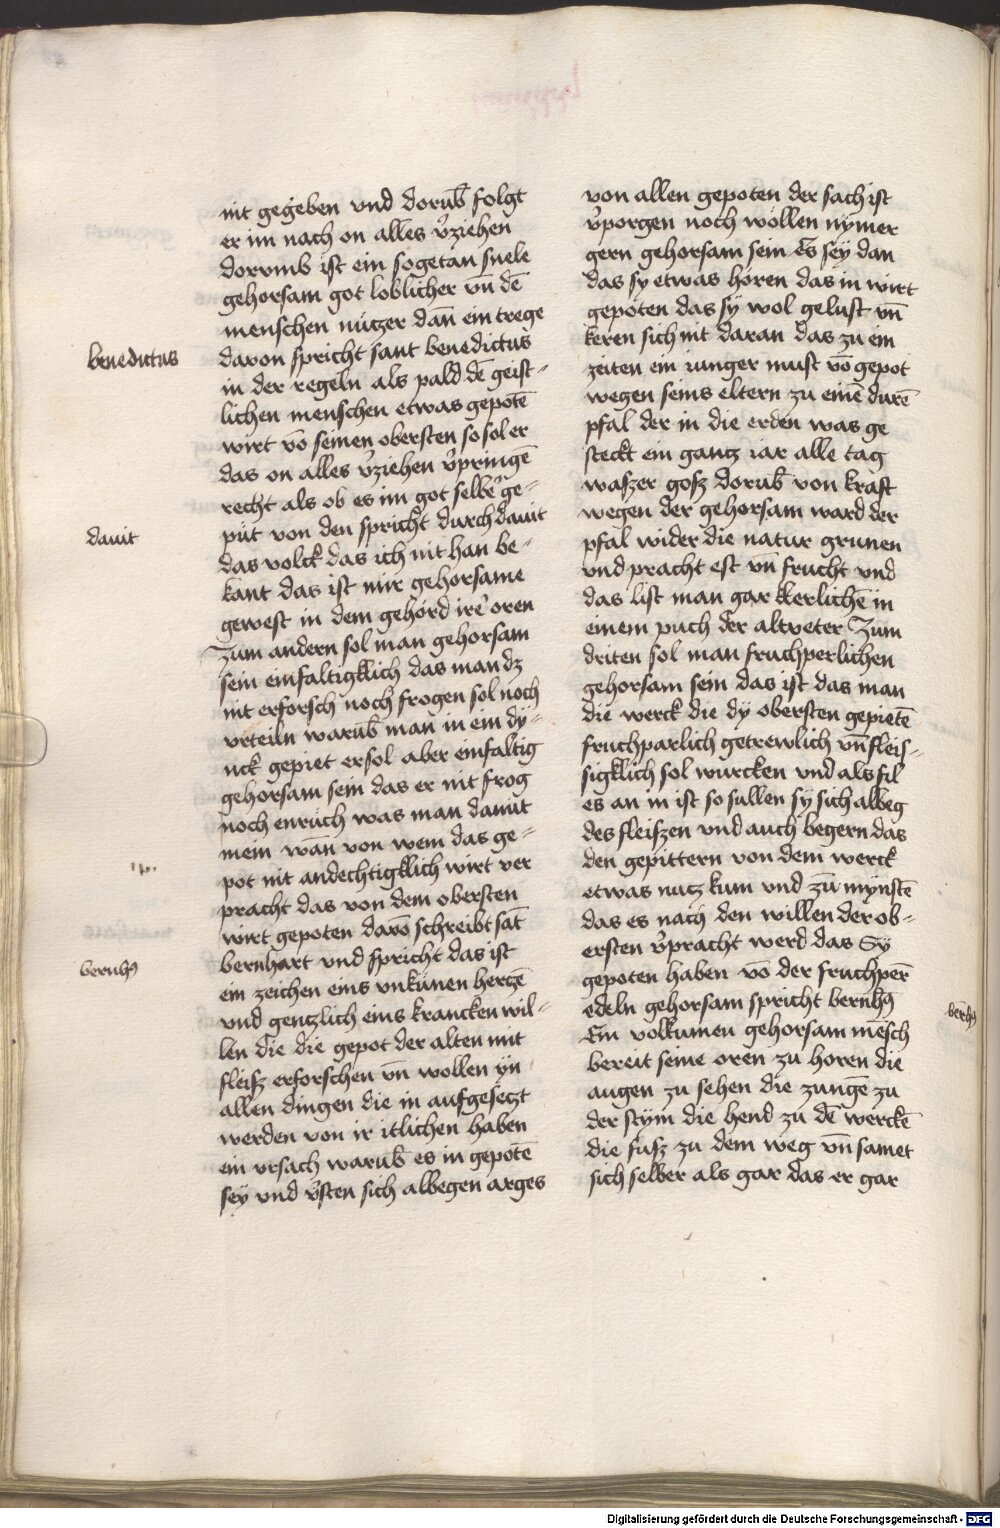 nit gegeben vnd dorub̄ folgt
er im nach on alles v̓ziehen
dorvmb ist ein sogetan snele
gehorsam got loblicher vn̄ dē
menschen nuczer dan̄ ein trege
daron spricht sant benedictus
in der regeln als pald dē geist-
lichen menschen etwas gepotē
wirt vō seinen obersten so sol er
das on alles v̓ziehen v̓pringē
recht als ob es im got selber ge-
püt von den spricht durch dauit
das volck das ich nit han be-
kant das ist mir gehorsame
gewest in dem gehord ire oren
Zum andern sol man gehorsam
sein einfaltigklich das man dz
nit erforsch noch frogen sol noch
vrteiln warub̄ man in ein dy-
nck gepiet er sol aber einfaltig
gehorsam sein das er nit frog
noch enruch was man damit
mein wan̄ von wem das ge-
pot nit andechtigklich wirt ver
pracht das von dem obersten
wirt gepoten darō schreibt sāt
bernhart vnd spricht das ist
ein zeichen eins vnkunen herczē
vnd genczlich eins krancken wil-
len die die gepot der alten mit
fleisz erforschen vn̄ wollen yn
allen dingen die in aufgeseczt
werden von ir itlichen haben
ein vrsach warub̄ es in gepotē
sey vnd v̓sten sich albegen arges
benedictus
dauit
bernhꝰ
von allen gepoten der sach ist
v̓porgen noch wollen nymer
gern gehorsam sein Es sey dan
das sy etwas horen das in wirt
gepoten das sy wol gelust vn̄
keren sich nit daran das zu ein
zeiten ein iunger must vō gepot
wegen seins eltern zu einē durē
pfal der in die erden was ge
steckt ein gancz iar alle tag
waszer gosz dorub̄ von kraft
wegen der gehorsam ward der
pfal wider die natur grunen
vnd pracht est vn̄ frucht vnd
das list man gar klerlichē in
einem puch der altveter Zum
driten sol man fruchperlichen
gehorsam sein das ist das man
die werck die dy obersten gepietē
fruchparlich getrewlich vn̄ fleis-
sigklich sol wurcken vnd als fil
es an in ist so sullen sy sich albeg
des fleiszen vnd auch begern das
den gepittern von dem werck
etwas nucz kum vnd zu mynstē
das es nach den willen der ob-
ersten v̓pracht werd das Sy
gepoten haben vō der fruchper̄
edeln gehorsam spricht bernh̄ꝰ
Ein volkumen gehorsam mēsch
bereit seine oren zu horen die
augen zu sehen die zungē zu
der stym die hend zu dē werckē
die fusz zu dem weg vn̄ samet
sich selber als gar das er gar
bernhꝰ
Digitalisierung gefördert durch die Deutsche Forschungsgemeinschaft - DFG